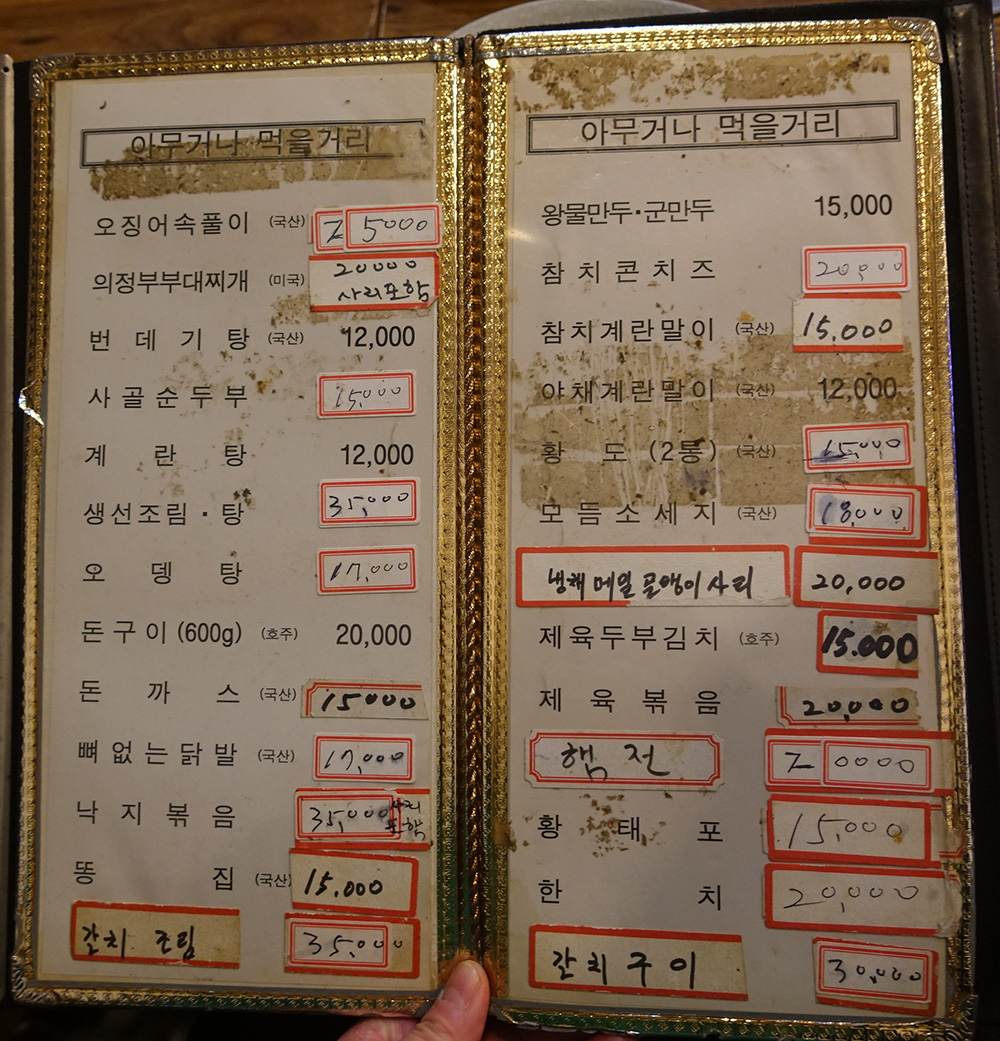 아무거나 먹을거리
오징어속풀이 (국산) 25000
의정부부대찌개 (미국) 20000 사리포함
번데기탕 (국산) 12,000
사골순두부 15,000
계란탕 12,000
생선조림·탕 35,000
오뎅탕 17,000
돈구이(600g) (호주) 20,000
돈까스 (국산) 15000
뼈없는닭발 (국산) 17,000
낙지볶음 35,000 사리포함
똥집 (국산) 15.000
갈치 조림 35.000
아무거나 먹을거리
왕물만두·군만두 15,000
참치콘치즈 20,000
참치계란말이 (국산) 15.000
야채계란말이 (국산) 12,000
황도(2통) (국산) 15,000
모듬소세지 (국산) 18,000
냉채메밀골뱅이사리 20,000
제육두부김치 (호주) 15.000
제육볶음 20,000
햄전 20000
황태포 15,000
한치 20,000
갈치구이 30,000